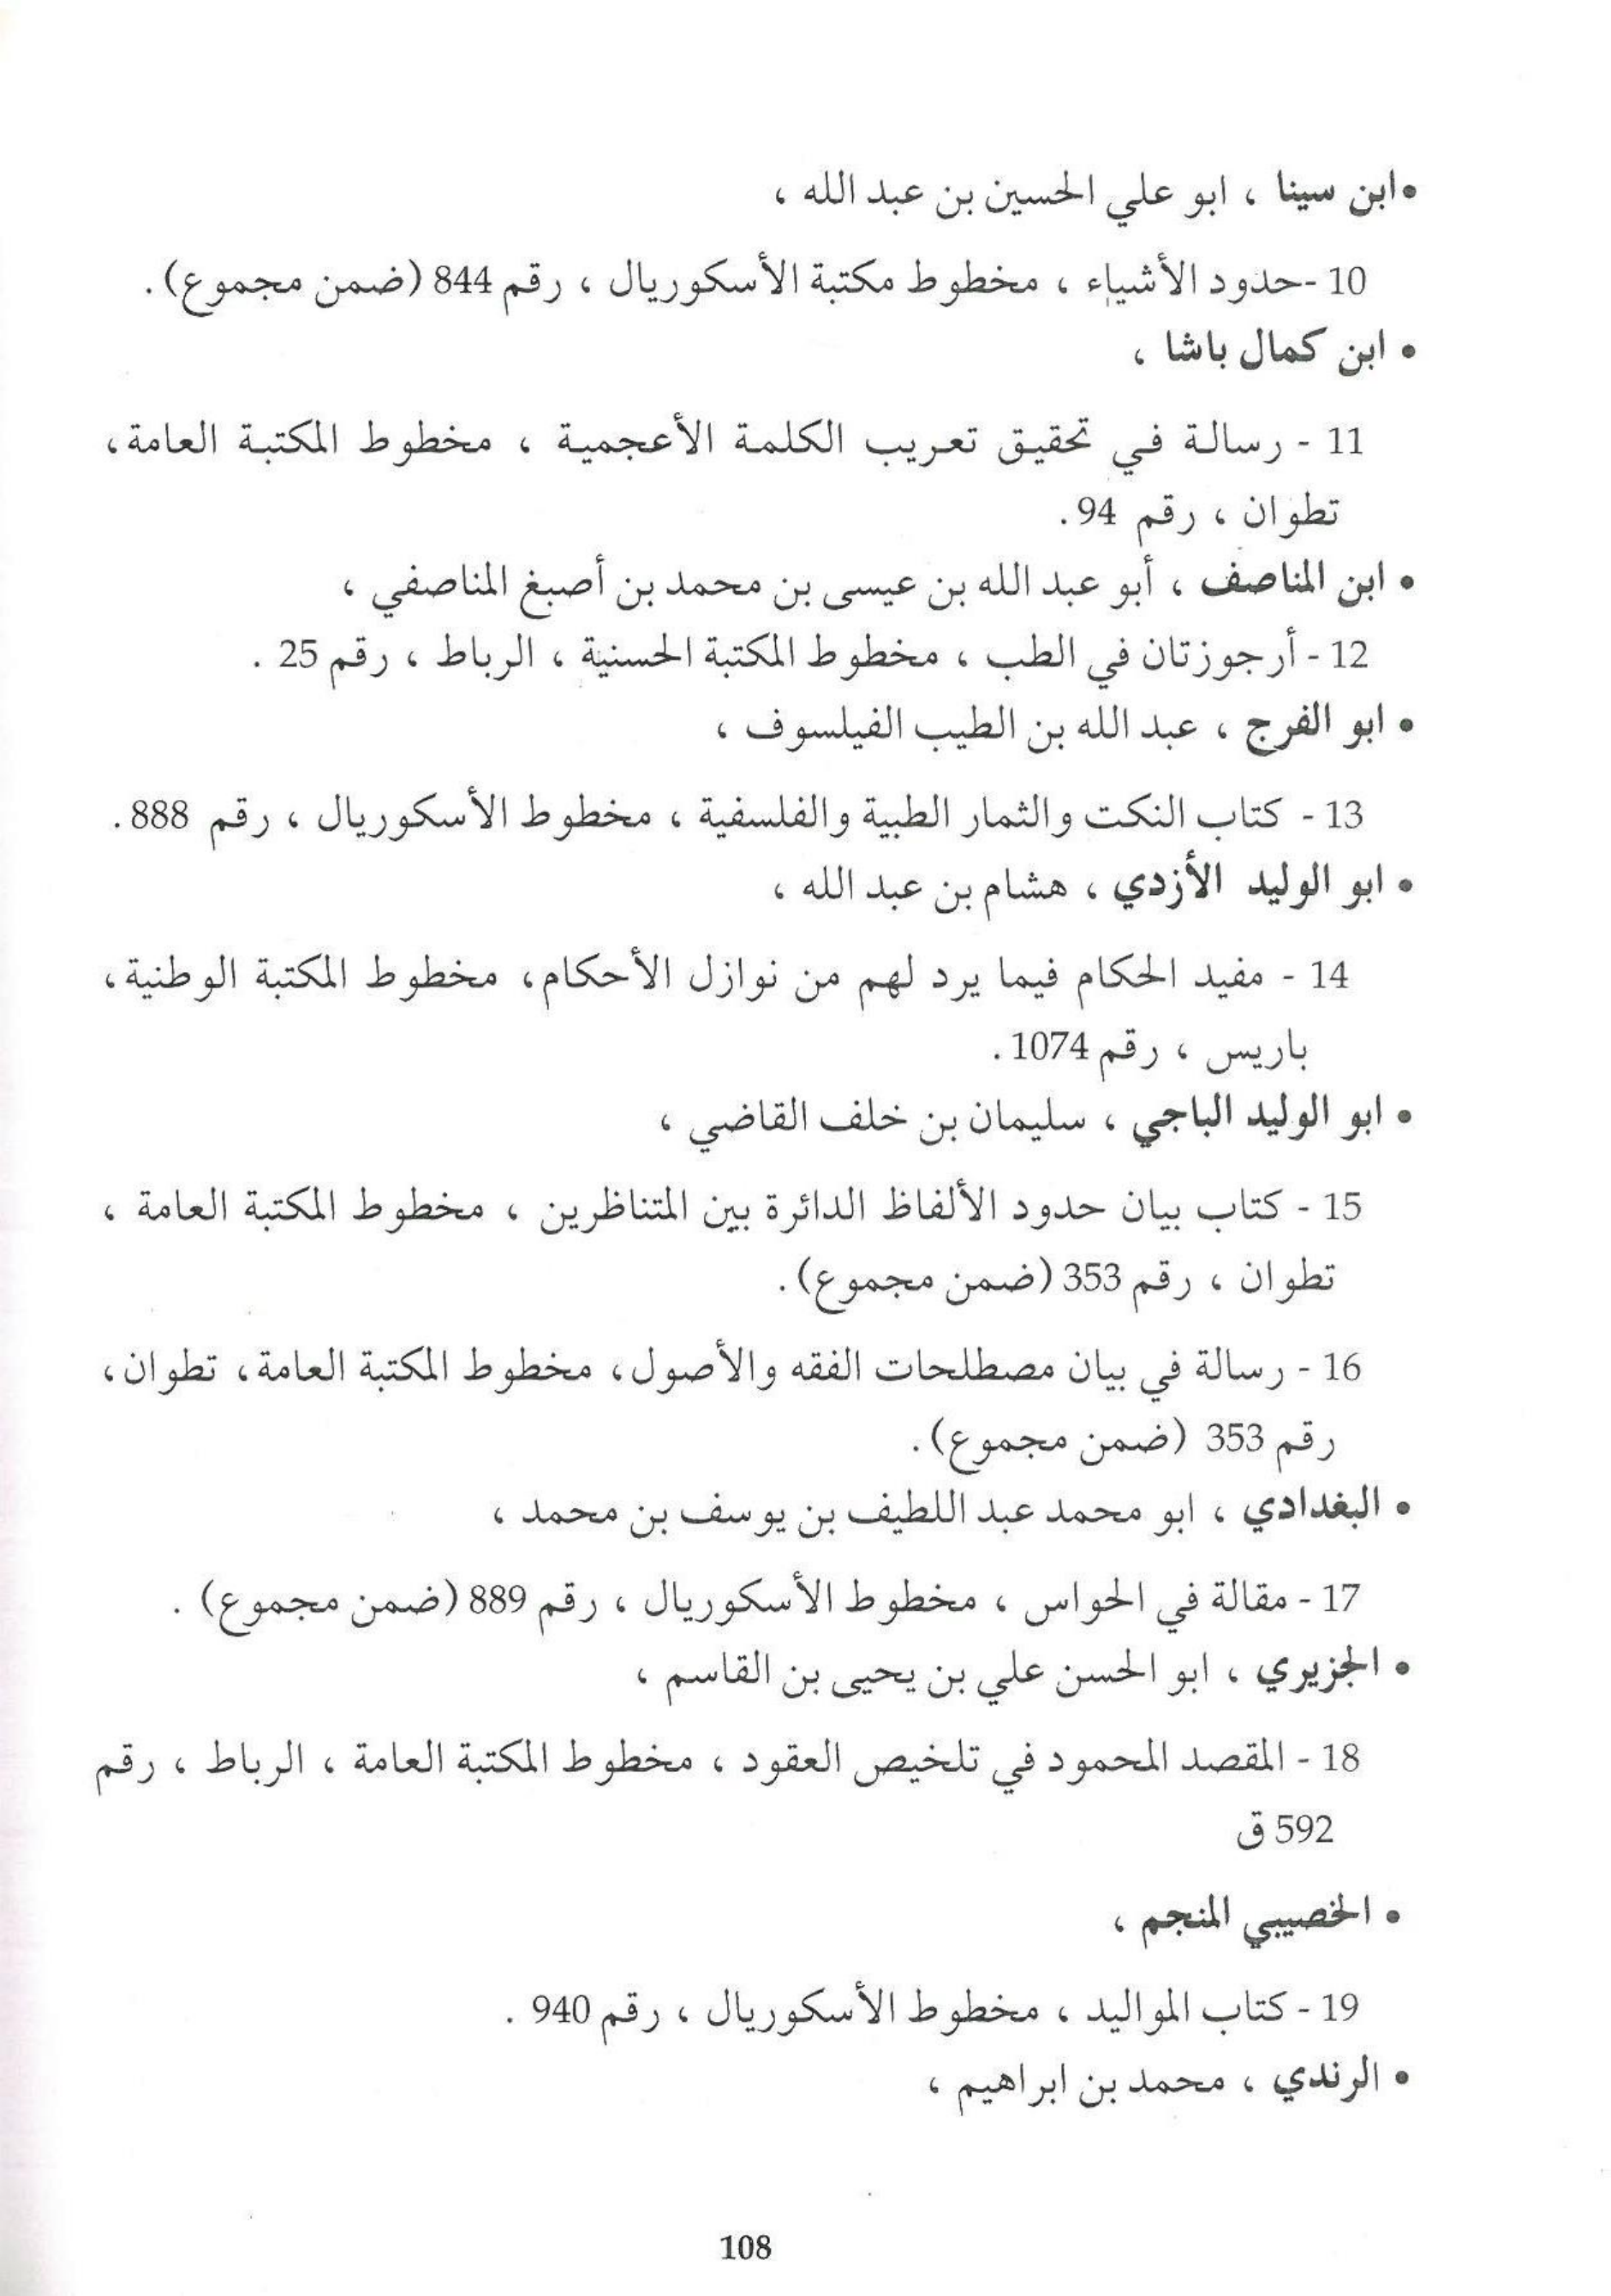 •ابن سينا ، ابو علي الحسين بن عبد الله ،
10 -حدود الأشياء ، مخطوط مكتبة الأسكوريال ، رقم 844 (ضمن مجموع).
• ابن كمال باشا ،
11 - رسالة في تحقيق تعريب الكلمة الأعجمية ، مخطوط المكتبة العامة،
تطوان ، رقم 94.
• ابن المناصف ، أبو عبد الله بن عيسى بن محمد بن أصبغ المناصفي ،
12 - أرجوزتان في الطب ، مخطوط المكتبة الحسنية ، الرباط ، رقم 25 .
• ابو الفرج ، عبد الله بن الطيب الفيلسوف ،
13 - كتاب النكت والثمار الطبية والفلسفية ، مخطوط الأسكوريال ، رقم 888.
• ابو الوليد الأزدي ، هشام بن عبد الله ،
14 - مفيد الحكام فيما يرد لهم من نوازل الأحكام، مخطوط المكتبة الوطنية،
باريس ، رقم 1074 .
• ابو الوليد الباجي ، سليمان بن خلف القاضي ،
15 - كتاب بيان حدود الألفاظ الدائرة بين المتناظرين ، مخطوط المكتبة العامة ،
تطوان ، رقم 353 (ضمن مجموع).
16 - رسالة في بيان مصطلحات الفقه والأصول، مخطوط المكتبة العامة، تطوان،
رقم 353 (ضمن مجموع).
• البغدادي ، ابو محمد عبد اللطيف بن يوسف بن محمد ،
17 - مقالة في الحواس ، مخطوط الأسكوريال ، رقم 889 (ضمن مجموع) .
• الجزيري ، ابو الحسن علي بن يحيى بن القاسم ،
18 - المقصد المحمود في تلخيص العقود ، مخطوط المكتبة العامة ، الرباط ، رقم
592 ق
• الخصيبي المنجم ،
19 - كتاب المواليد ، مخطوط الأسكوريال ، رقم 940 .
• الرندي ، محمد بن ابراهيم ،
108